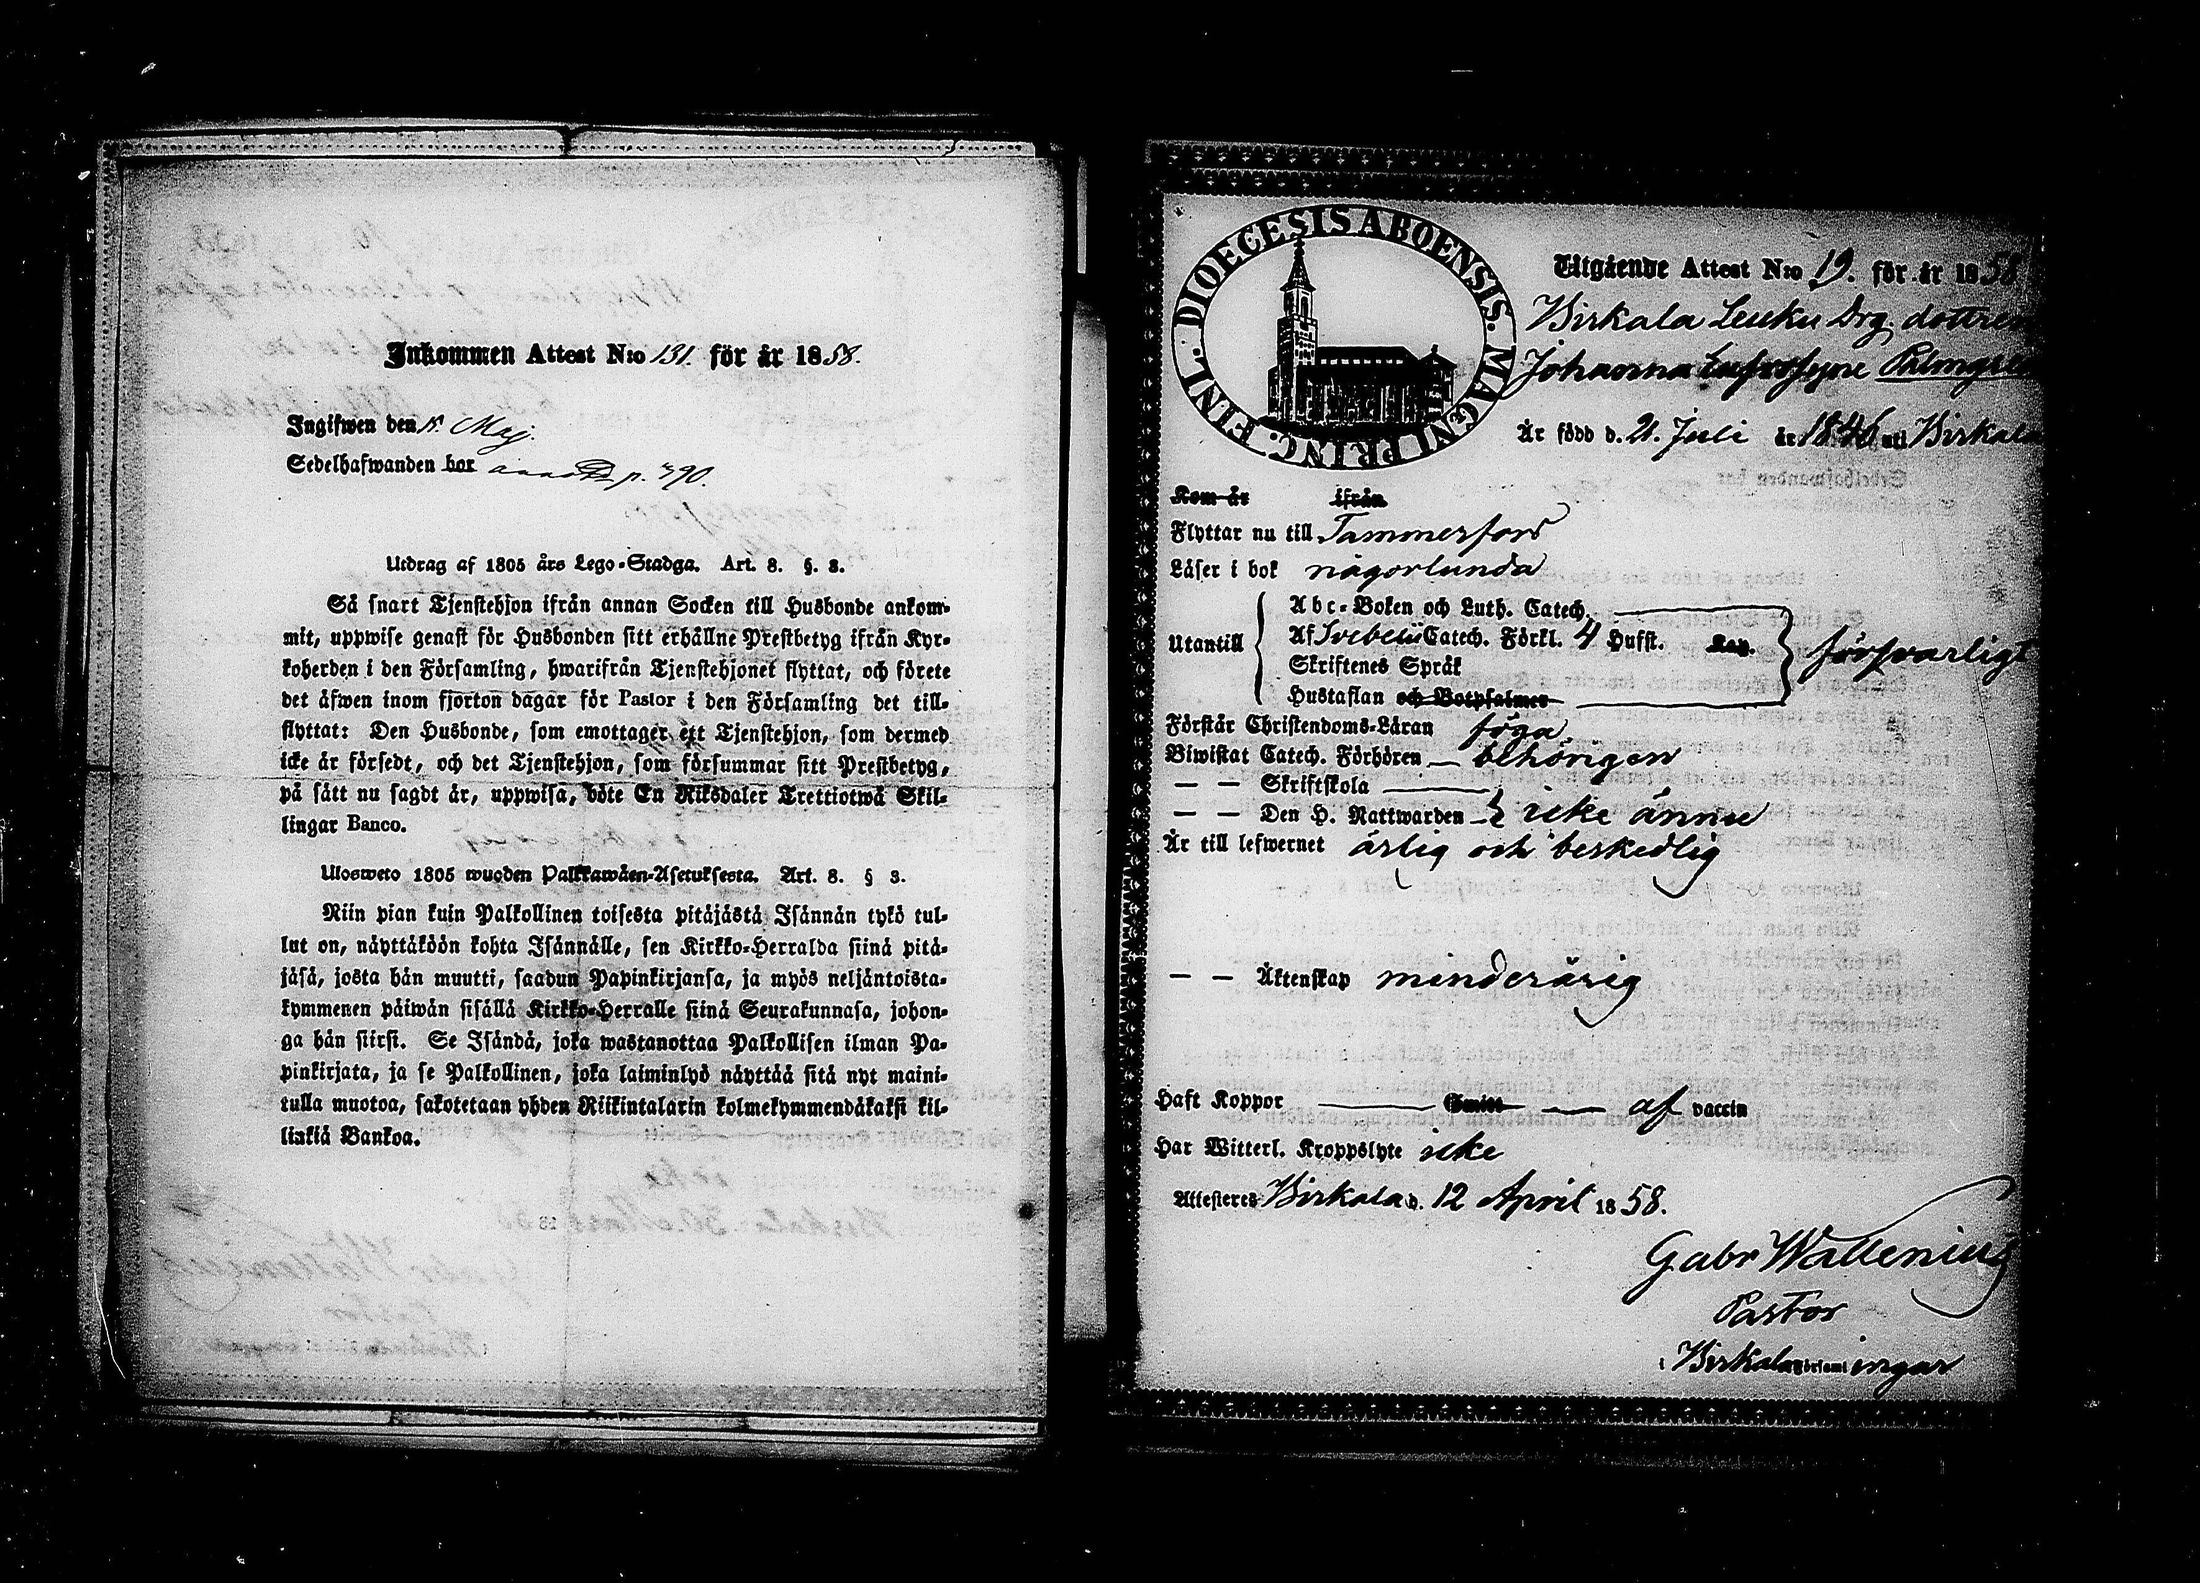 Inkommen Attest N:o 131. för år 1858.
Ingifwen den 1. Maj.
Sedelhafwanden bor p. 390.
Utdrag af 1805 års Lego-Stadga. Art. 8. §. 3.
Så snart Tjenstehjon ifrån annan Socken till Husbonde ankom-
mit, uppwise genast för Husbonden sitt erhållne Prestbetyg ifrån Kyr-
koherden i den Församling, hwarifrån Tjenstehjonet flyttat, och förete
det äfwen inom fjorton dagar för Pastor i den Församling det till-
flyttat: Den Husbonde, som emottager ett Tjenstehjon, som dermed
icke är försedt, och det Tjenstehjon, som försummar sitt Prestbetyg,
på sätt nu sagdt är, uppwisa, böte En Riksdaler Trettiotwå Skil-
lingar Banco.
Ulosweto 1805 wuoden Palkkawäen-Asetuksesta. Art. 8. § 3.
Niin pian kuin Palkollinen toisesta pitäjästä Isännän tykö tul-
lut on, näyttäköön kohta Isännälle, sen Kirkko-Herralda siinä pitä-
jäsä, josta hän muutti, saadun Papinkirjansa, ja myös neljäntoista-
kymmenen päiwän sisällä Kirkko-Herralle siinä Seurakunnasa, johon-
ga hän siirsi. Se Isändä, joka wastanottaa Palkollisen ilman Pa-
pinkirjata, ja se Palkollinen, joka laiminlyö näyttää sitä nyt maini-
tulla muotoa, sakotetaan yhden Riikintalarin kolmekymmendäkaksi kil-
linkiä Bankoa.
FINL. DIOECESIS ABOENSIS. MAGNI PRINC.
Utgående Attest N:o 19. för år 1858
Birkala Leuku Drg. dottren
Johanna Eufrosyne Palmgren
Är född d. 21. Juli år 1846 uti Birkala
Kom år ifrån
Flyttar nu till Tammerfors
Läser i bok någorlunda
Utantill
Abc-Boken och Luth. Catech.
Af Svebelii Catech. Förkl. 4 Hufst. Kap. försvarligt
Skriftenes Språk
Hustaflan och Botpsalmer
Förstår Christendoms-Läran föga
Biwistat Catech. Förhören behörigen
— — Skriftskola
— — Den H. Nattwarden icke ännu
Är till lefwernet ärlig och beskedlig
— — Äktenskap minderårig
Haft Koppor Smitt af vaccin
Har Witterl. Kroppslyte icke
Attesteres Birkala d. 12 April 1858.
Gabr Wallenius
Pastor
i Birkala församlingar